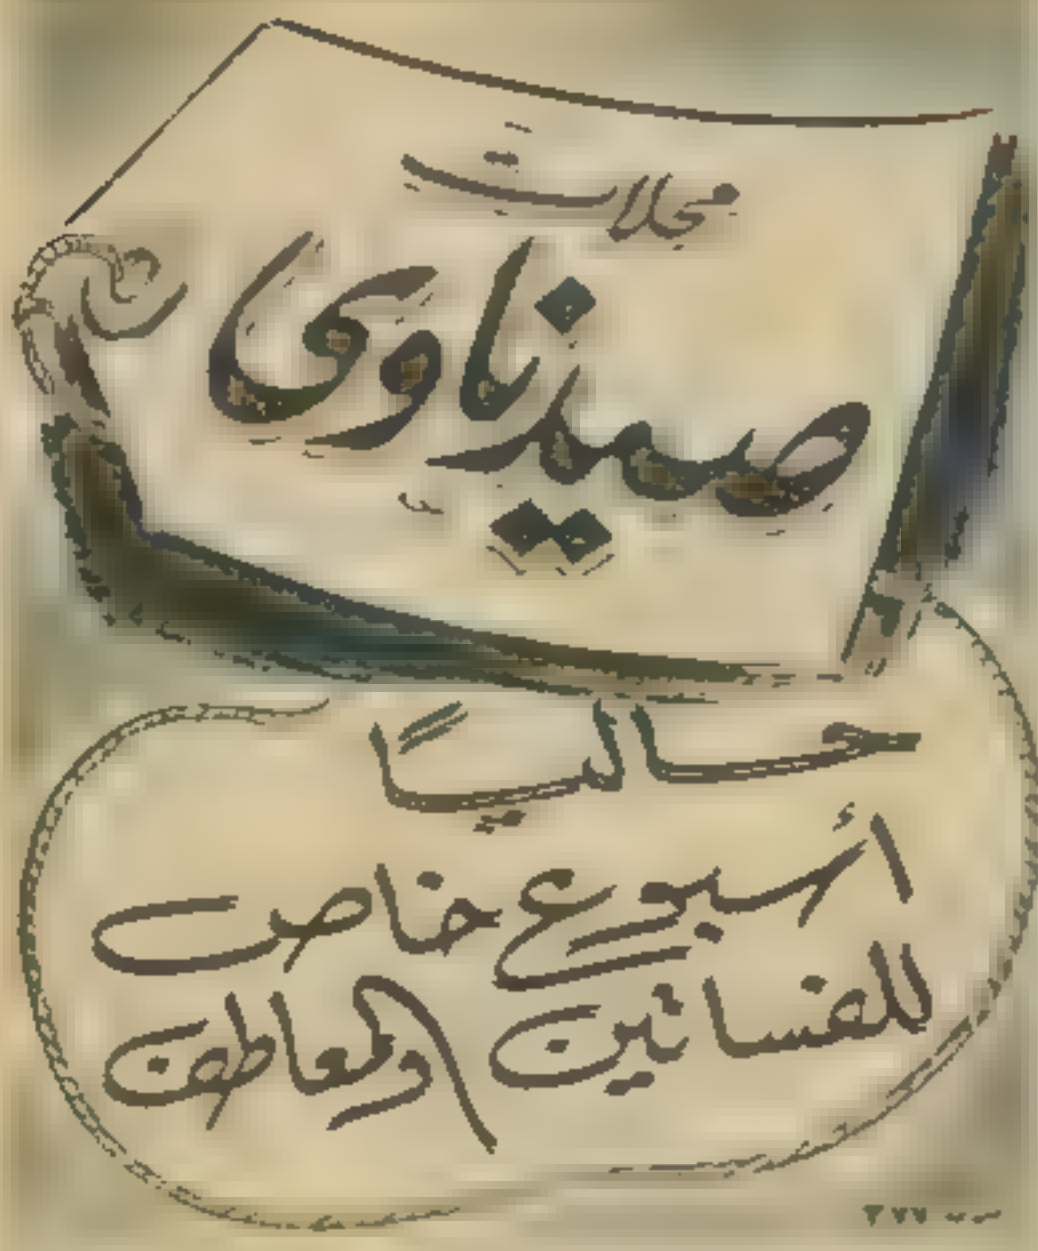 محلات
صيدناوى
حاليًا
أسبوع خاص
للفساتين والمعاطف